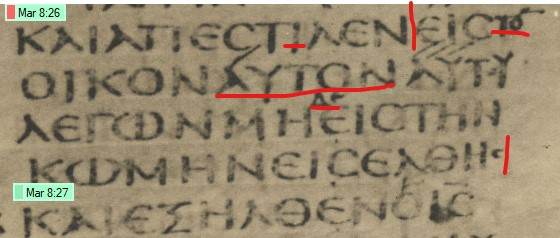 Mar 8:26
ΚΑΙΑΠΕϹΤΙΛΕΝΕΙϹτο
ΟΙΚΟΝΑΥΤΟΝΑΥΤΥ
δε
ΛΕΓΩΝΜΗΕΙϹΤΗΝ
ΚΩΜΗΝΕΙϹΕΛΘΗϹ
Mar 8:27
ΚΑΙΕΞΗΛΘΕΝΟΙϹ